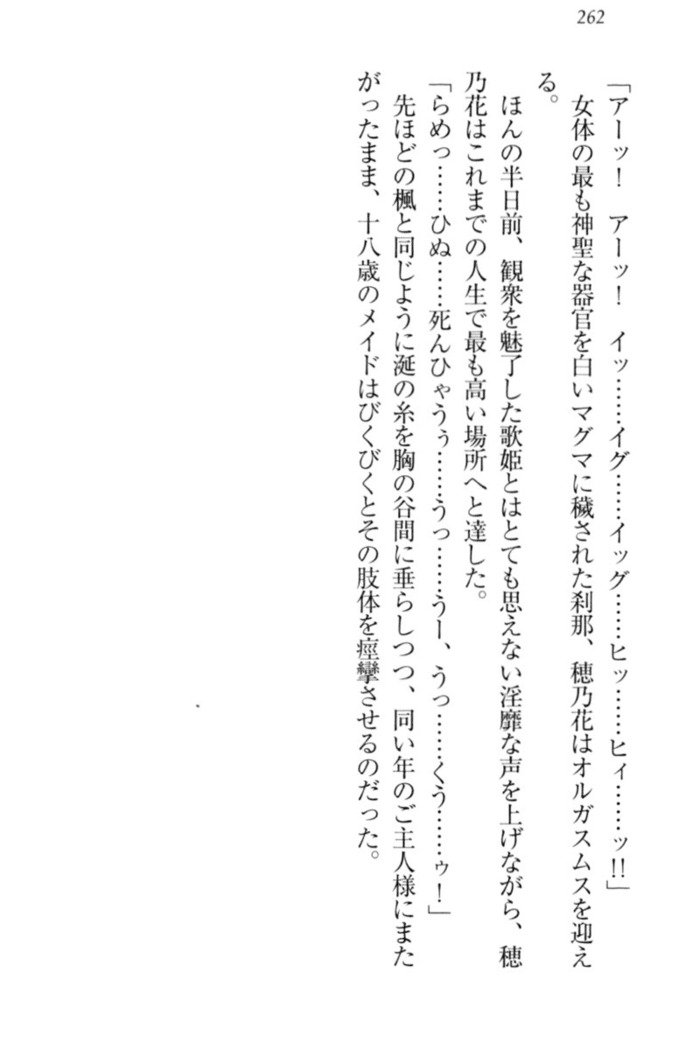 262
「アーッ!　アーッ!　イッ……イグ……イッグ……ヒッ……ヒィ……ッ!!」
　女体の最も神聖な器官を白いマグマに穢された刹那、穂乃花はオルガスムスを迎え
る。
　ほんの半日前、観衆を魅了した歌姫とはとても思えない淫靡な声を上げながら、穂
乃花はこれまでの人生で最も高い場所へと達した。
「らめっ……ひぬ……死んひゃうぅ……うっ……うー、うっ……くう……ゥ!」
　先ほどの楓と同じように涎の糸を胸の谷間に垂らしつつ、同い年のご主人様にまた
がったまま、十八歳のメイドはびくびくとその肢体を痙攣させるのだった。